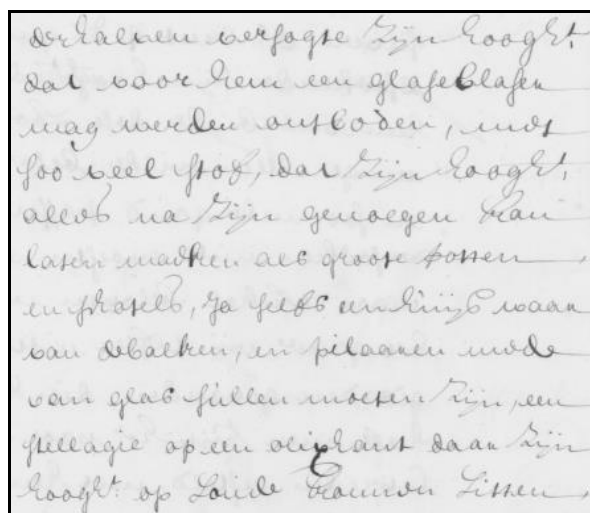 derhalven versogte Zijn hooght.
dat voor hem een glaseblaser
mag werden ontboden, met
soo veel stof, dat Zijn hooght.
alles na Zijn genoegen kan
laten maeken als groote potten
en fratels, ja selfs een huijs waar
van de balken, en pilaaren mede
van glas sullen moeten Zijn, een
stellagie op een olijphant daar Zijn
hooght. op Soude konnen Sitten,